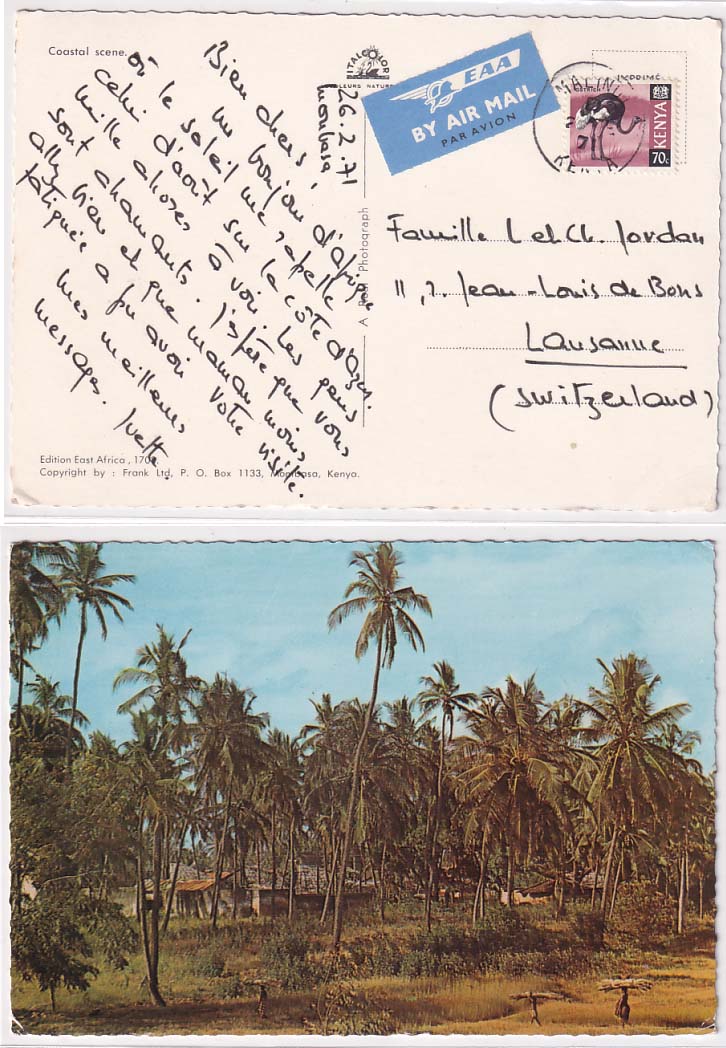 Coastal scene.
ITALCOLOR
Mombasa
26.2.71
Bien chers,
un bonjour d'Afrique
où le soleil me rappelle
celui d'août sur la côte d'azur.
mille choses à voir. Les gens
sont charmants. J'espère que vous
allez bien et que maman moins
fatiguée a pu avoir votre visite.
mes meilleurs
messages. Yvette.
A Real Photograph
Edition East Africa, 170
Copyright by : Frank Ltd, P. O. Box 1133, Mombasa, Kenya.
EAA
BY AIR MAIL
PAR AVION
IMPRIMÉ
MALINDI
KENYA
OSTRICH
KENYA
70c
Famille L et Ch. Jordan
11, r. Jean-Louis de Bons
Lausanne
(Switzerland)